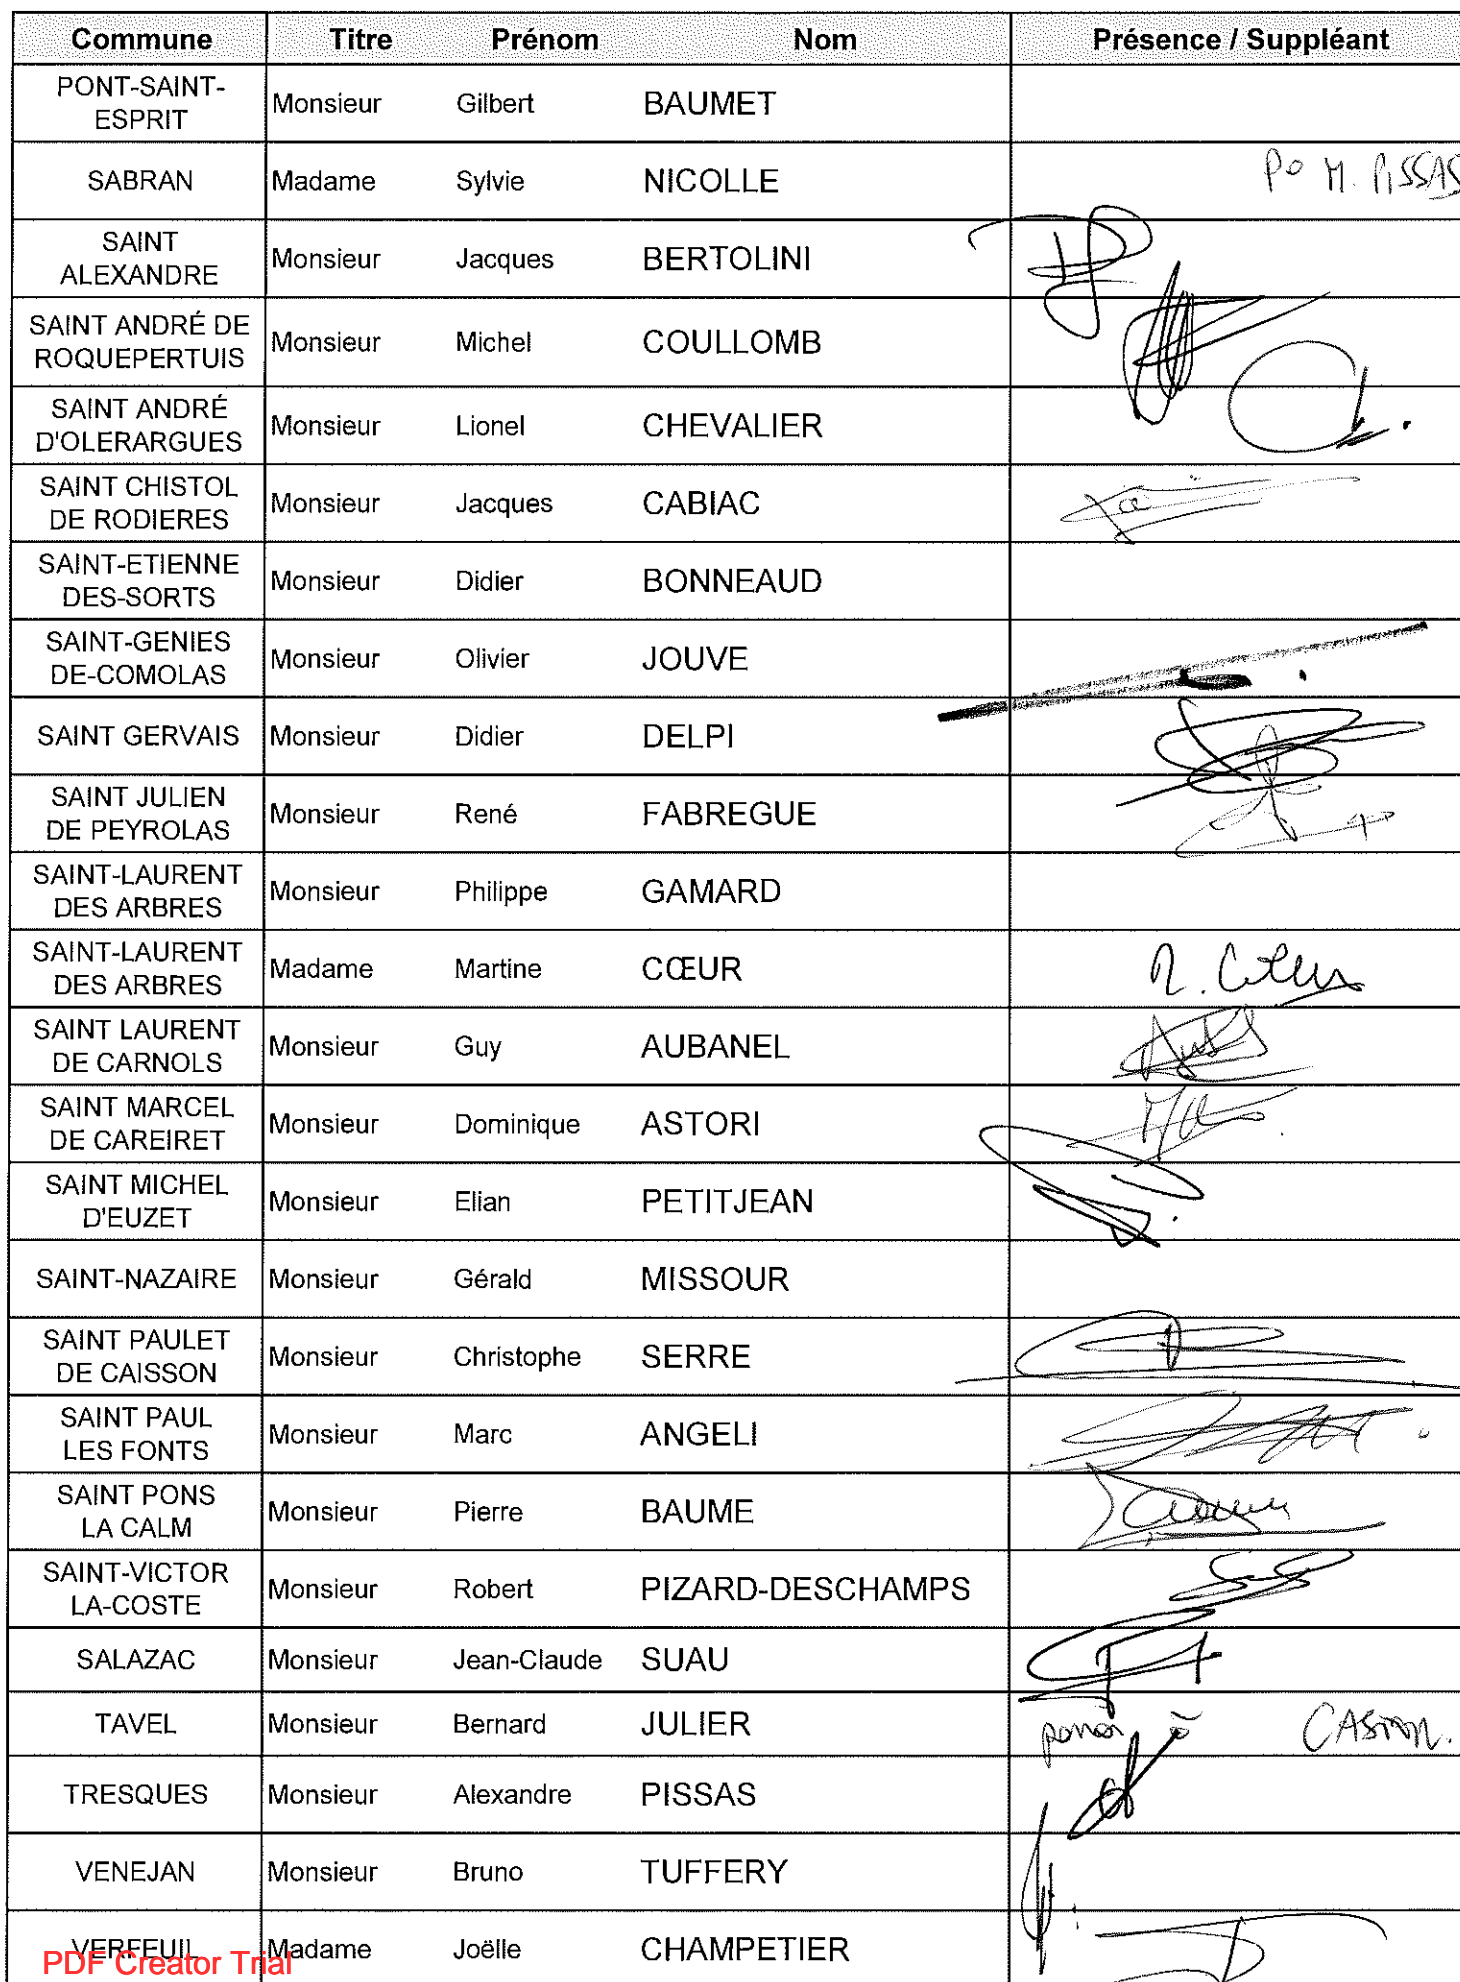 Commune Titre Prénom Nom Présence / Suppléant
PONT-SAINT-
ESPRIT Monsieur Gilbert BAUMET
SABRAN Madame Sylvie NICOLLE Po M. PISSAS
SAINT
ALEXANDRE Monsieur Jacques BERTOLINI
SAINT ANDRÉ DE
ROQUEPERTUIS Monsieur Michel COULLOMB
SAINT ANDRÉ
D'OLERARGUES Monsieur Lionel CHEVALIER
SAINT CHISTOL
DE RODIERES Monsieur Jacques CABIAC
SAINT-ETIENNE
DES-SORTS Monsieur Didier BONNEAUD
SAINT-GENIES
DE-COMOLAS Monsieur Olivier JOUVE
SAINT GERVAIS Monsieur Didier DELPI
SAINT JULIEN
DE PEYROLAS Monsieur René FABREGUE
SAINT-LAURENT
DES ARBRES Monsieur Philippe GAMARD
SAINT-LAURENT
DES ARBRES Madame Martine CŒUR
SAINT LAURENT
DE CARNOLS Monsieur Guy AUBANEL
SAINT MARCEL
DE CAREIRET Monsieur Dominique ASTORI
SAINT MICHEL
D'EUZET Monsieur Elian PETITJEAN
SAINT-NAZAIRE Monsieur Gérald MISSOUR
SAINT PAULET
DE CAISSON Monsieur Christophe SERRE
SAINT PAUL
LES FONTS Monsieur Marc ANGELI
SAINT PONS
LA CALM Monsieur Pierre BAUME
SAINT-VICTOR
LA-COSTE Monsieur Robert PIZARD-DESCHAMPS
SALAZAC Monsieur Jean-Claude SUAU
TAVEL Monsieur Bernard JULIER
TRESQUES Monsieur Alexandre PISSAS
VENEJAN Monsieur Bruno TUFFERY
VERFEUIL Madame Joëlle CHAMPETIER
PDF Creator Trial